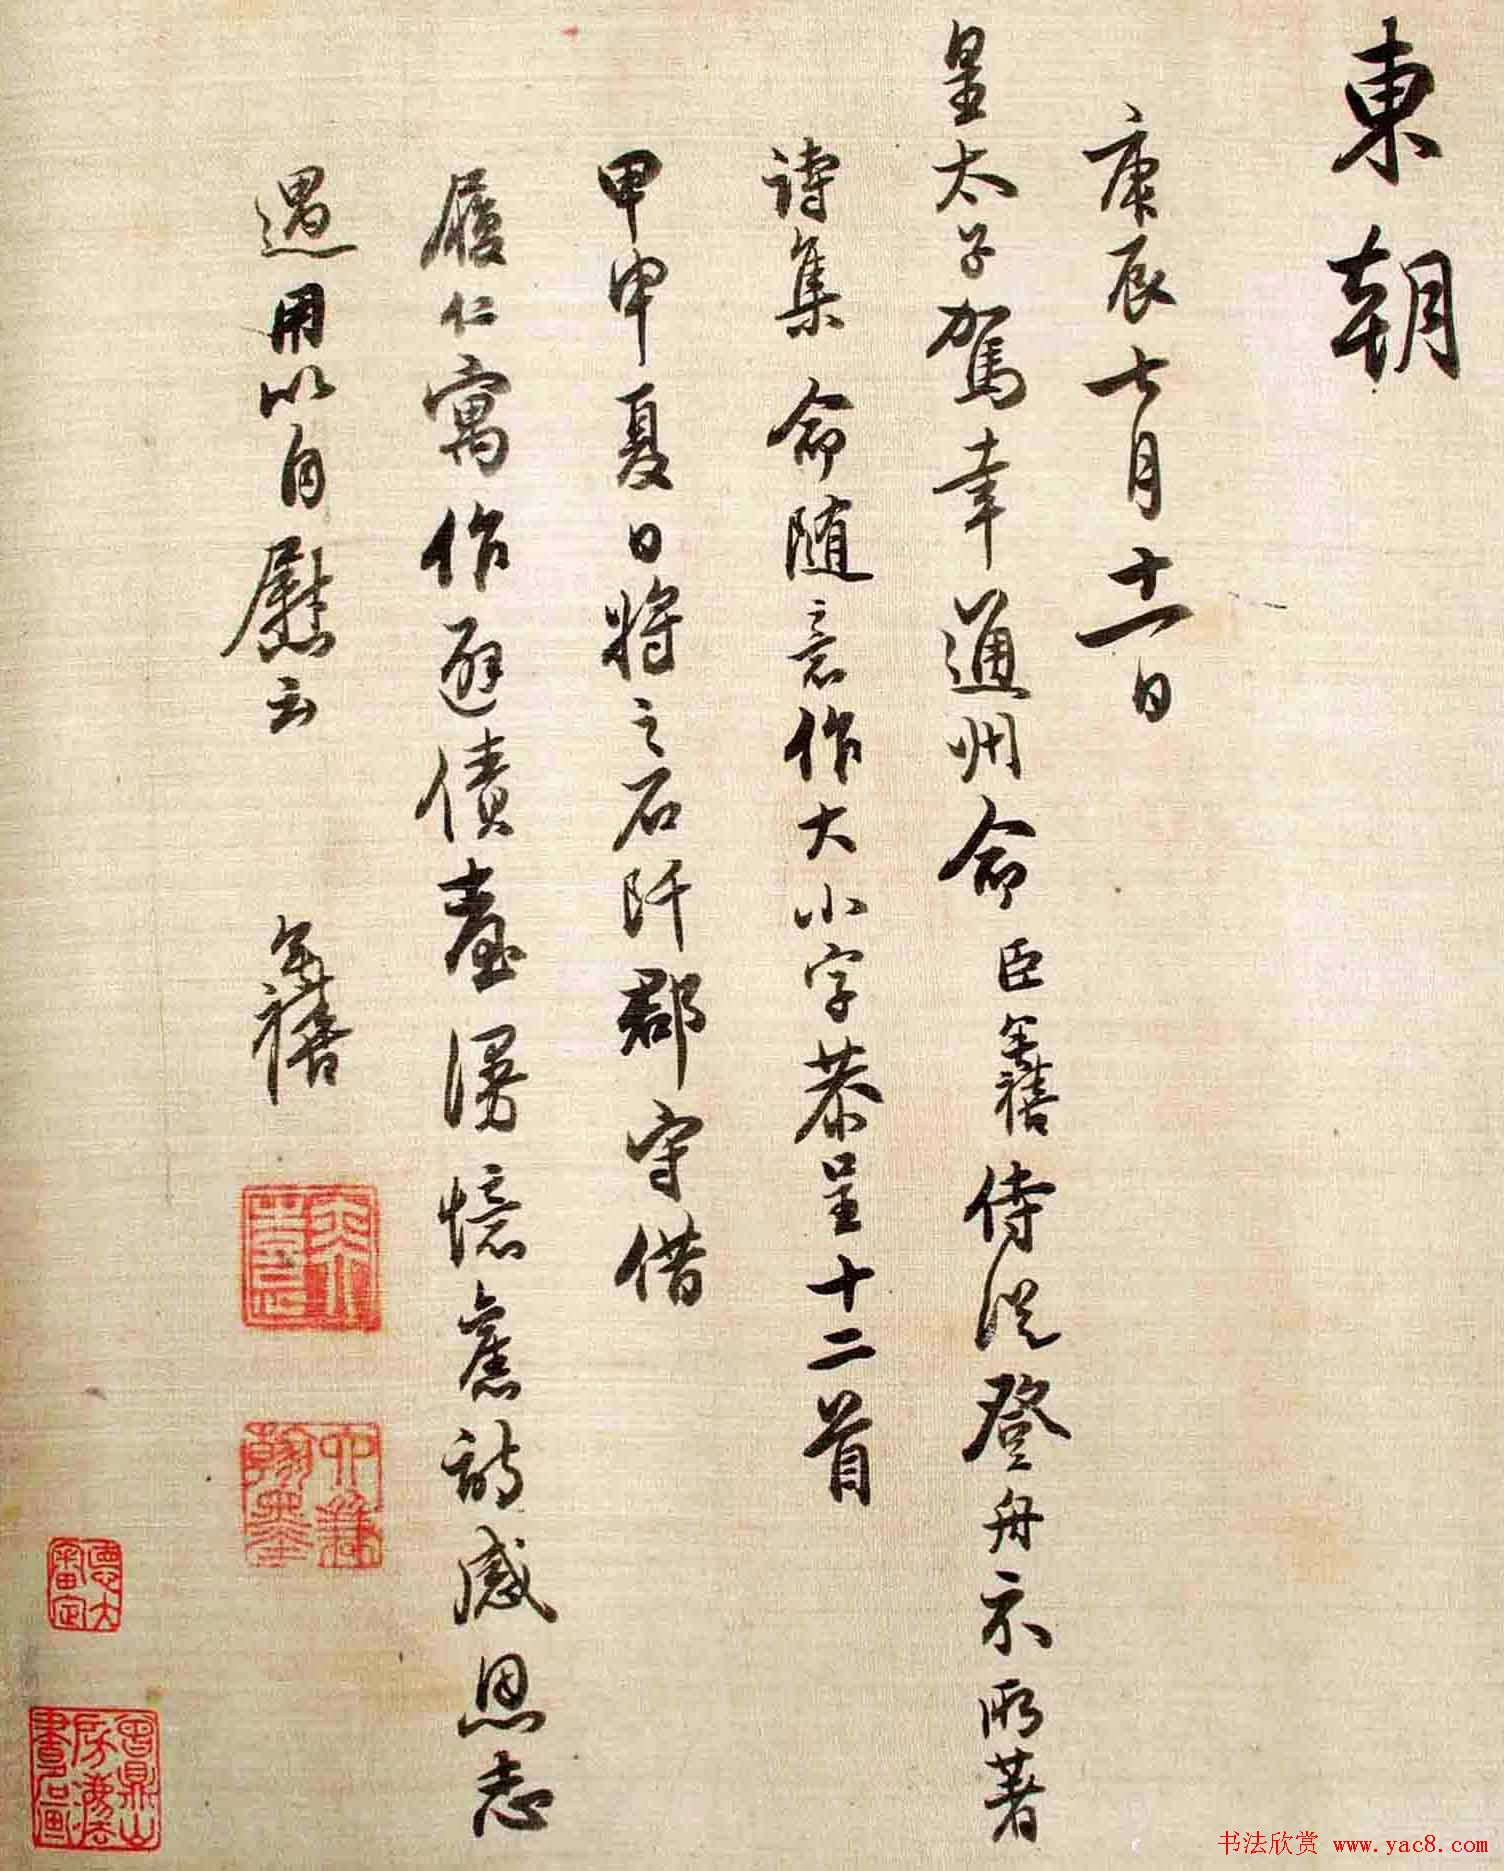 東朝
庚辰七月十一日
皇太子駕幸通州命臣年禧侍從登舟示所著
詩集命随意作大小字恭呈十二首
甲申夏日將之石阡郡守借
履仁寓作避債臺漫憶舊詩感恩志
遇用以自慰云
年禧
德大審定
曾鼎山房藏書畫
书法欣赏 www.yac8.com